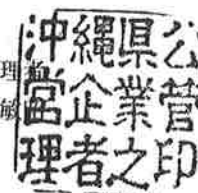 沖縄県公
営企業管
理者之印
理
敏